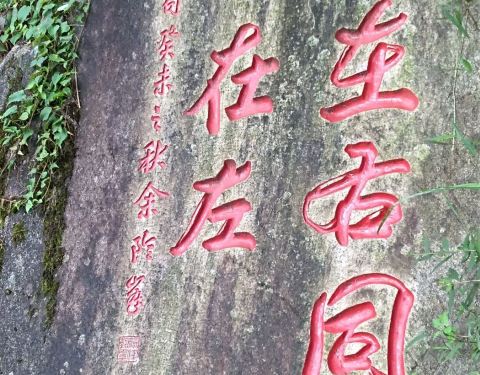 在右同
在左
癸未之秋余险峯